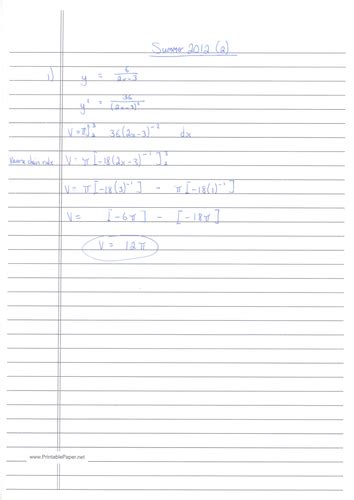 Summer 2012 (2)
1) y = 6/(2x-3)
y² = 36/(2x-3)²
V = π∫₂³ 36(2x-3)⁻² dx
chain rule V = π[-18(2x-3)⁻¹]₂³
V = π[-18(3)⁻¹] - π[-18(1)⁻¹]
V = [-6π] - [-18π]
V = 12π
www.PrintablePaper.net